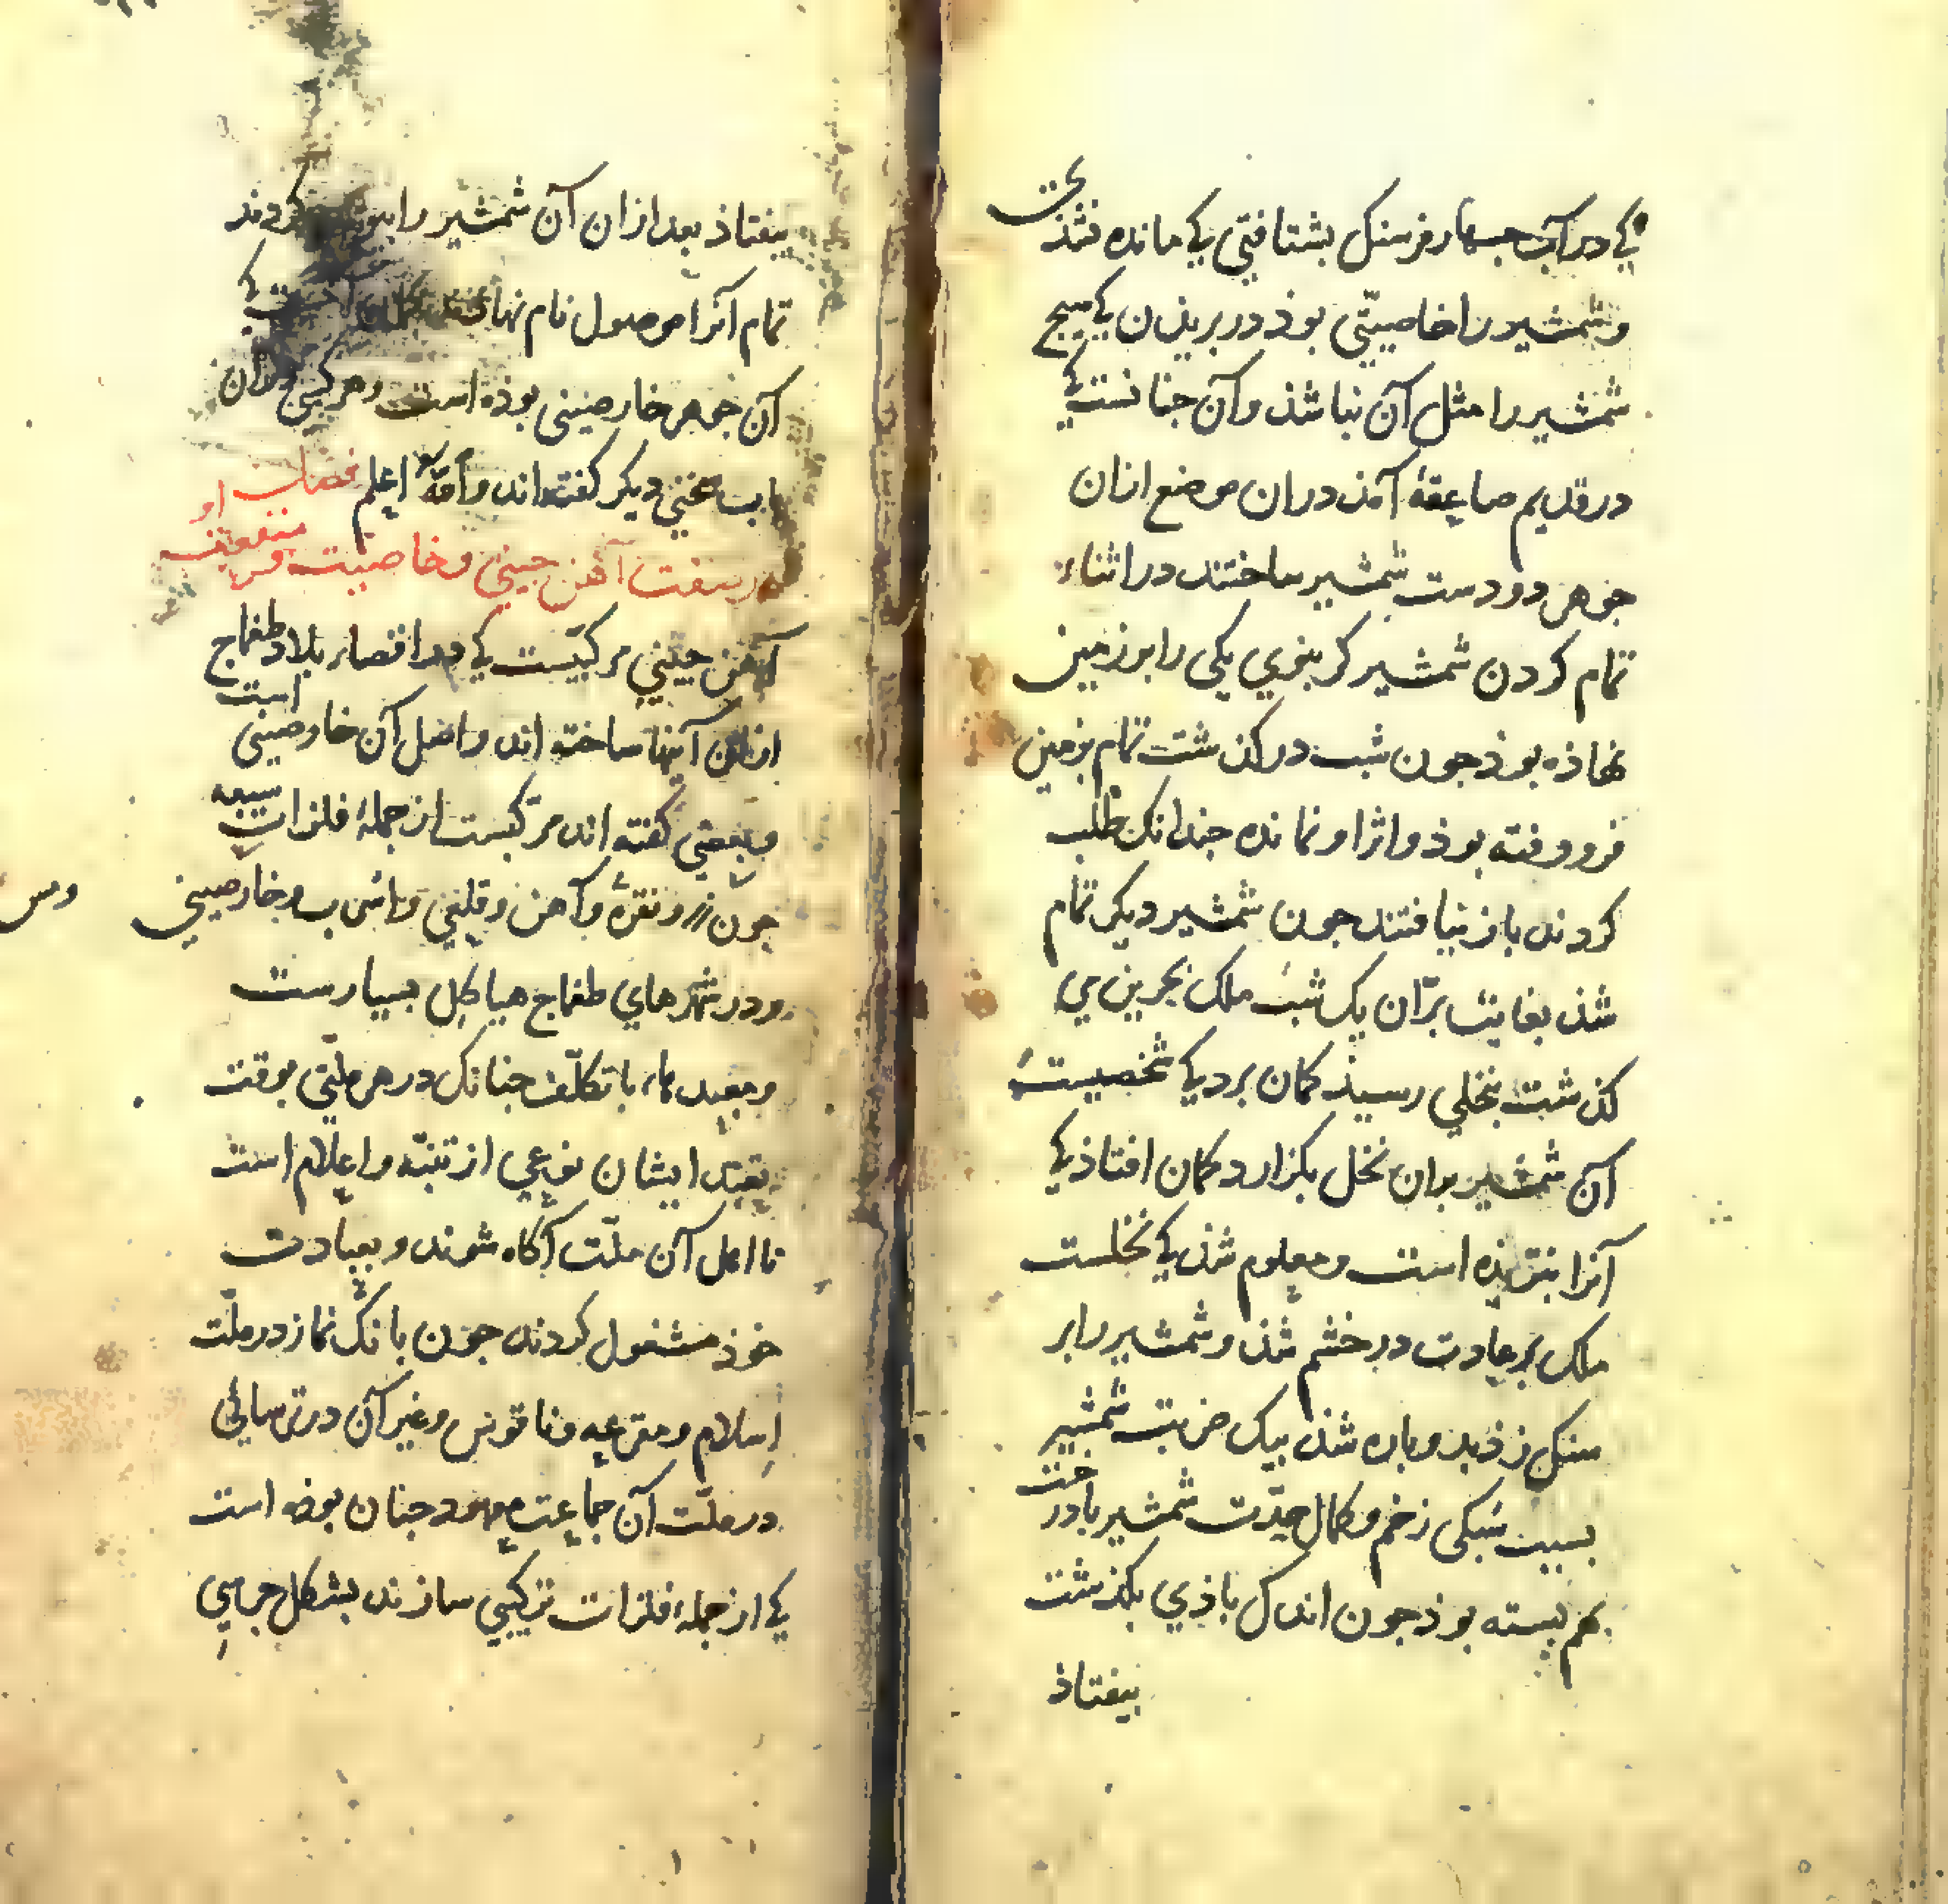 کی در آب جهار فرسنک بشتافتی کی مانده نشذی
و شمشیر را خاصیتی بوذ در بریذن کی هیج
شمشیر را مثل آن نباشذ و آن جنانست کی
در قدیم صاعقهٔ آمذ در ان موضع از ان
جوهر دو دست شمشیر ساختند در اثناء
تمام کردن شمشیر کر بنوی یکی را بر زمین
نهاذه بوذ جون شب در کذشت تمام بزمین
فرو رفته بوذ و اثر او نمانده جندانک طلب
کردند باز نیافتند جون شمشیر دیکر تمام
شذ بغایت برّان یک شب ملک بحرین می
کذشت بنخلی رسیذ کمان برد کی شخصیست
آن شمشیر بران نخل بکزارد کمان افتاذ کی
آنرا نبریذه است و معلوم شذ کی نخلست
ملک بر عادت در خشم شذ و شمشیر را بر
سنک زذ بدو باره شذ بیک ضربت شمشیر
بسبب سبکی زخم و کمال حدّت شمشیر با درخت
هم بسته بوذ جون اندک باذی بکذشت
بیفتاذ
بیفتاذ بعد از ان آن شمشیر را کردند
تمام آنرا موصول نام نهاذند کی
آن جوهر خار صینی بوذه است و هر کسی در ان
باب سخنی دیکر کفته اند و الله اعلم
در صفت آهن جینی و خاصیت و منفعت و مضرت او
آهن جینی مرکبیست کی در اقصاء بلاد طمغاج
از ان آینها ساخته اند و اصل آن خار صینی است
و بعضی کفته اند مرکبست از جملهٔ فلزات سبعه
جون زر و نقره و آهن و قلعی و اسرب و خار صینی و مس
و در شهرهای طمغاج هیاکل بسیارست
و معبدها با تکلّف جنانک در هر ملتی بوقت
تعبد ایشان نوعی از تنبّه و اعلام است
تا اهل آن ملّت آکاه شوند و بعبادت
خوذ مشغول کردند جون بانک نماز در ملّت
اسلام و مقرعه و ناقوس و غیر آن در ترسائی
در ملّت آن جماعت معهود جنان بوذه است
کی از جملهٔ فلزات ترکیبی سازند بشکل جرسی